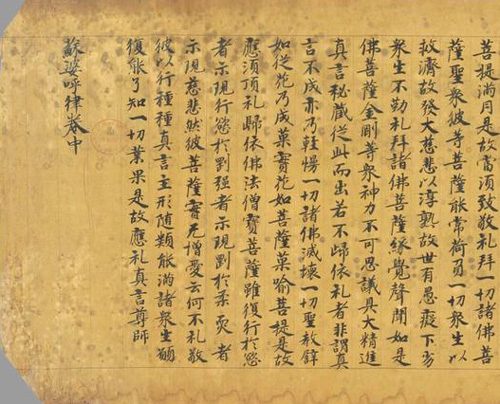 菩提満月是故當須致敬礼拜一切諸佛菩
薩聖衆彼等菩薩能常荷負一切衆生以
救濟故發大慈悲以淳熟故世有愚癡下劣
衆生不勤礼拜諸佛菩薩縁覺聲聞如是
佛菩薩金剛等衆神力不可思議具大精進
真言秘藏從此而出若不歸依礼者非謂真
言不成亦乃輕慢一切諸佛滅壞一切聖教
如從花乃成菓實花如菩薩菓喻菩提是故
應須頂礼歸依佛法僧寳菩薩雖復行於慾
者示現行慾於剛强者示現剛於柔耎者
示現慈悲然彼菩薩實无憎愛云何不礼敬
彼以行種種真言主形随類能滿諸衆生願
復能了知一切業果是故應礼真言尊師
蘇婆呼律卷中